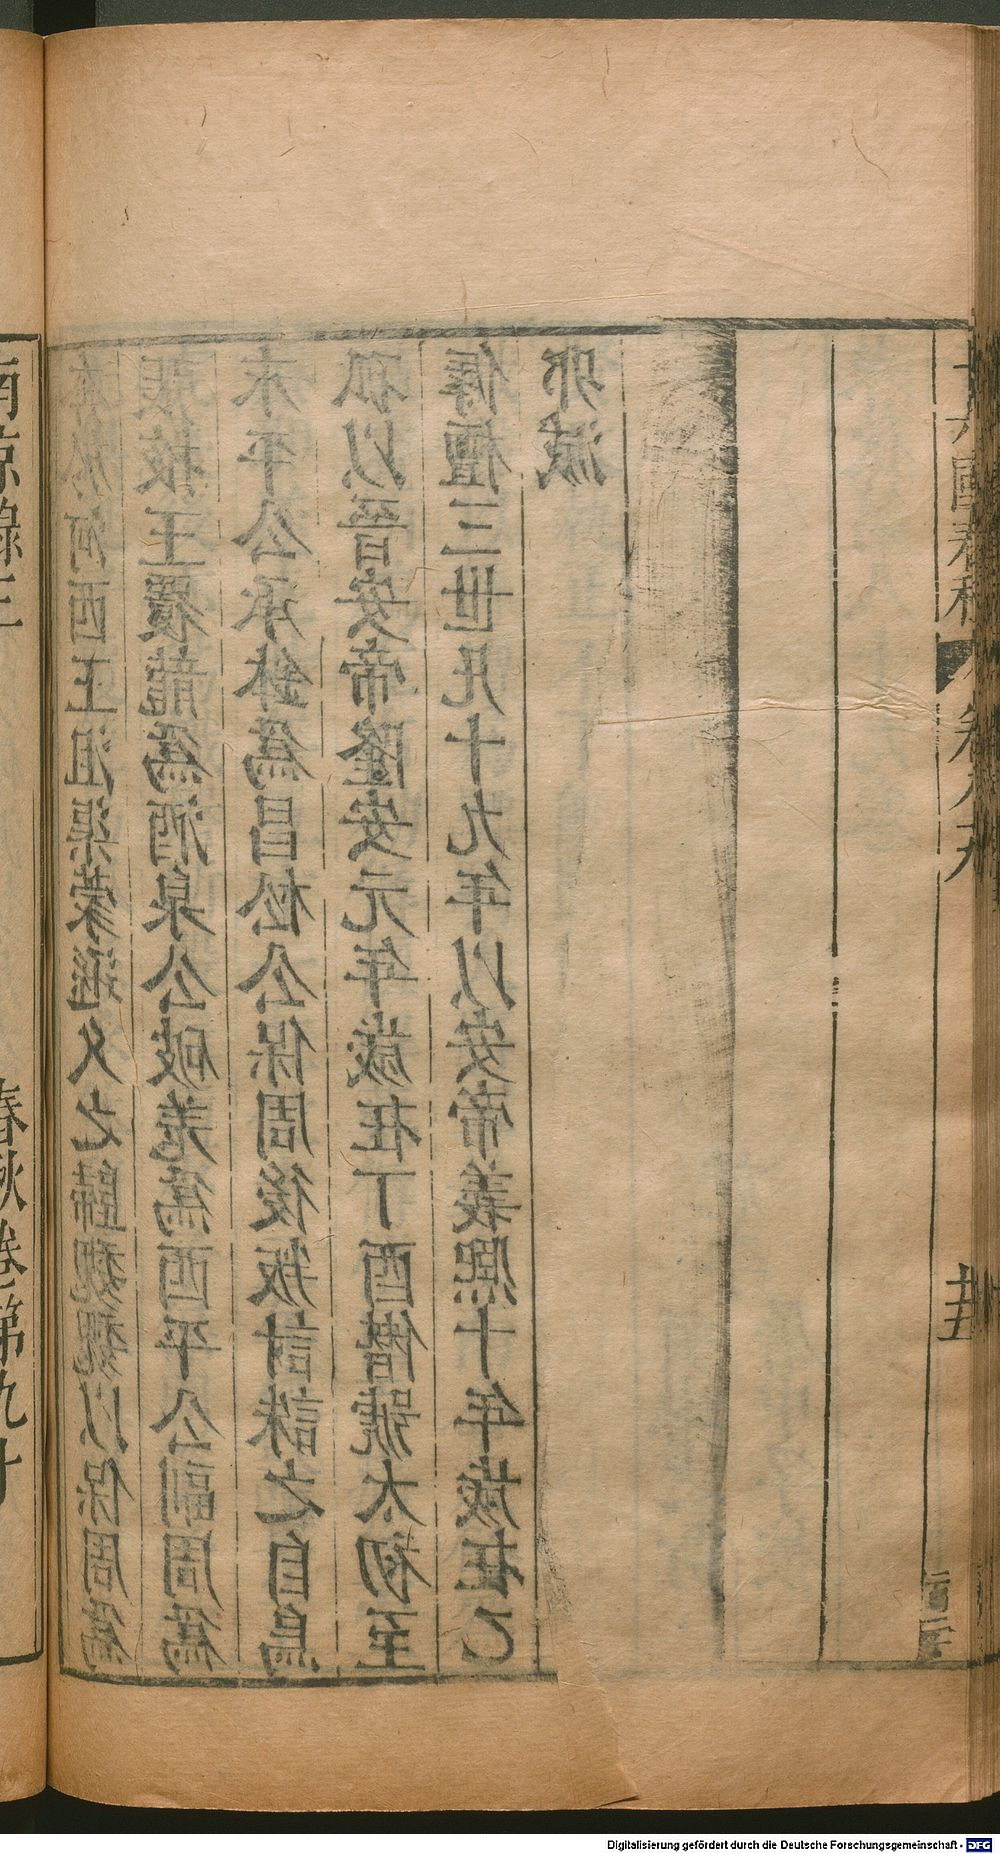 十六國春秋 卷八九
奔於河西王沮渠蒙遜久之歸魏魏以保周為
張掖王覆龍為酒泉公破羌為西平公副周為
永平公承鉢為昌松公保周後叛討誅之自烏
孤以晉安帝隆安元年歲在丁酉僭號太初至
傉檀三世凡十九年以安帝義熙十年歲在乙
卯滅
南涼錄三 春秋卷第九十
Digitalisierung gefördert durch die Deutsche Forschungsgemeinschaft - DFG